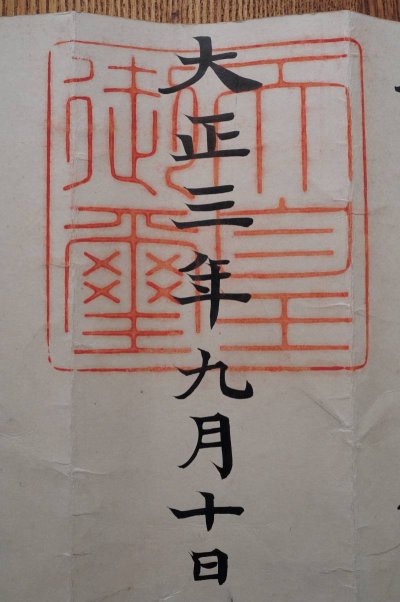 大正三年九月十日
天皇
御璽